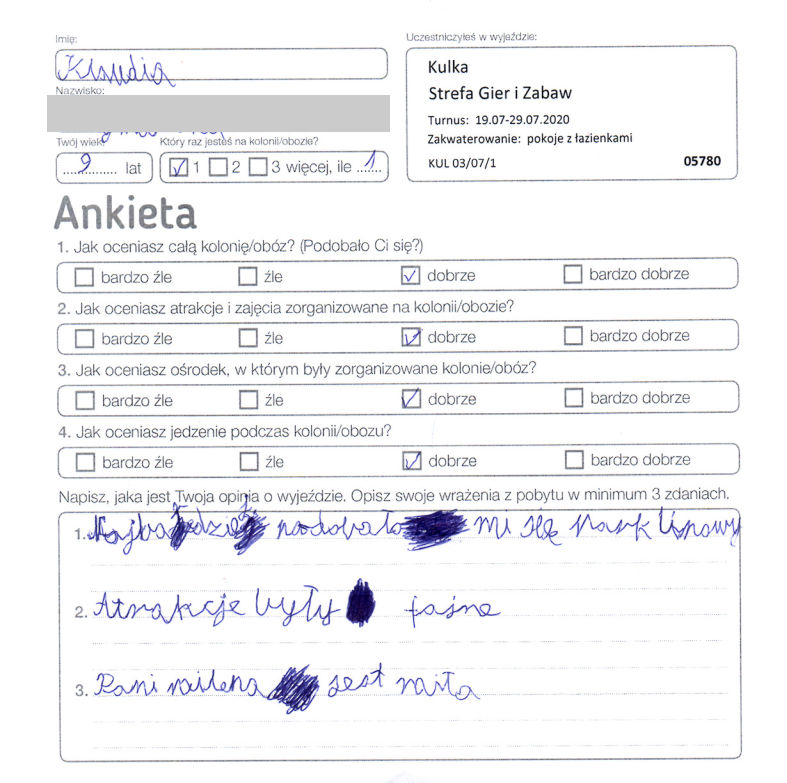 Imię:
Klaudia
Nazwisko:
Twój wiek:
Który raz jesteś na kolonii/obozie?
9 lat
1 2 3 więcej, ile 1
Uczestniczyłeś w wyjeździe:
Kulka
Strefa Gier i Zabaw
Turnus: 19.07-29.07.2020
Zakwaterowanie: pokoje z łazienkami
KUL 03/07/1 05780
Ankieta
1. Jak oceniasz całą kolonię/obóz? (Podobało Ci się?)
bardzo źle źle dobrze bardzo dobrze
2. Jak oceniasz atrakcje i zajęcia zorganizowane na kolonii/obozie?
bardzo źle źle dobrze bardzo dobrze
3. Jak oceniasz ośrodek, w którym były zorganizowane kolonie/obóz?
bardzo źle źle dobrze bardzo dobrze
4. Jak oceniasz jedzenie podczas kolonii/obozu?
bardzo źle źle dobrze bardzo dobrze
Napisz, jaka jest Twoja opinia o wyjeździe. Opisz swoje wrażenia z pobytu w minimum 3 zdaniach.
1. podobało mi się Park Linowy
2. Atrakcje były fajne
3. Pani jest